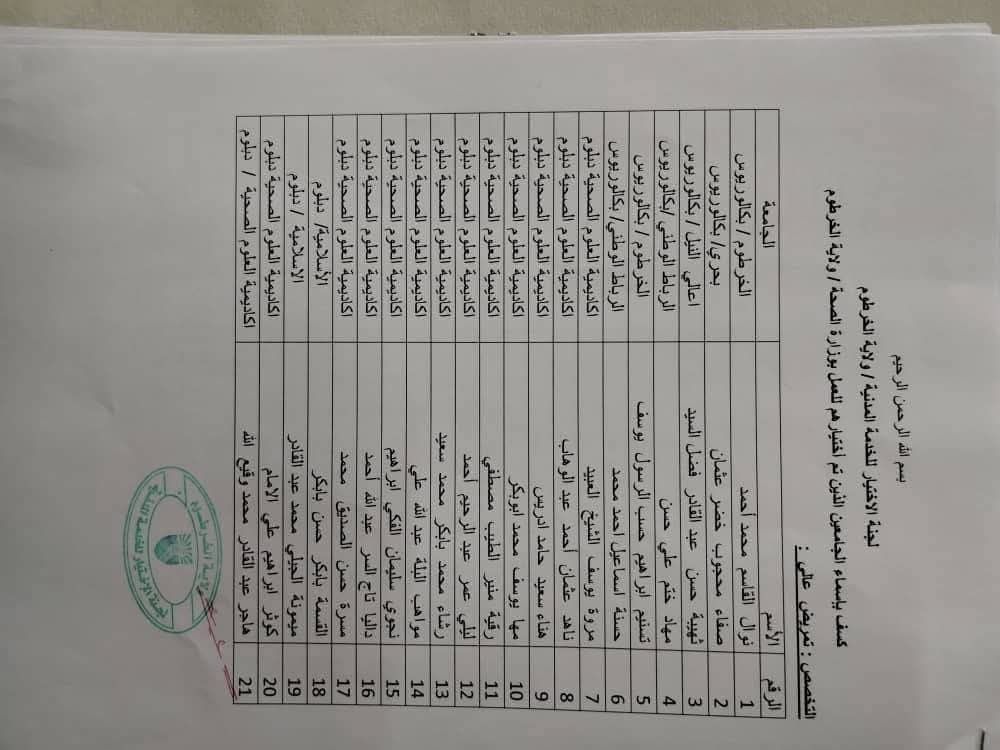 بسم الله الرحمن الرحيم
لجنة الاختيار للخدمة المدنية / ولاية الخرطوم
كسف باسماء الجامعين الذين تم اختيار هم للعمل بوزارة الصحة / ولاية الخرطوم
التخصص : تمريض عالي :
الرقم الأسم الجامعة
1 نوال القاسم محمد أحمد الخرطوم / بكالوريوس
2 صفاء محجوب خضر عثمان بحري/ بكالوريوس
3 تهيبة حسن عبد القادر فضل السيد اعالي النيل / بكالوريوس
4 مهاد ختم علي حسن الرباط الوطني /بكالوريوس
5 تسنيم ابراهيم حسب الرسول يوسف الخرطوم / بكالوريوس
6 حسنة اسماعيل احمد محمد الرباط الوطني/ بكالوريوس
7 مروة يوسف الشيخ العبيد اكاديمية العلوم الصحية دبلوم
8 ناهد عثمان أحمد عبد الوهاب اكاديمية العلوم الصحية دبلوم
9 هناء سعيد حامد ادريس اكاديمية العلوم الصحية دبلوم
10 مها يوسف محمد ابوبكر اكاديمية العلوم الصحية دبلوم
11 رقية منير الطيب مصطفي اكاديمية العلوم الصحية دبلوم
12 ليلي عمر عبد الرحيم أحمد اكاديمية العلوم الصحية دبلوم
13 رشاء محمد بابكر محمد سعيد اكاديمية العلوم الصحية دبلوم
14 مواهب اليلة عبد الله علي اكاديمية العلوم الصحية دبلوم
15 نجوي سليمان الفكي ابراهيم اكاديمية العلوم الصحية دبلوم
16 داليا تاج السر عبد الله أحمد اكاديمية العلوم الصحية دبلوم
17 مسرة حسن الصديق محمد اكاديمية العلوم الصحية دبلوم
18 القسمة بابكر حسن بابكر الأسلامية/ دبلوم
19 ميمونة الجيلي محمد عبد القادر الاسلامية / دبلوم
20 كوثر ابراهيم علي الامام اكاديمية العلوم الصحية دبلوم
21 هاجر عبد القادر محمد وقيع الله اكاديمية العلوم الصحية / دبلوم
لجنة الاختيار للخدمة المدنية